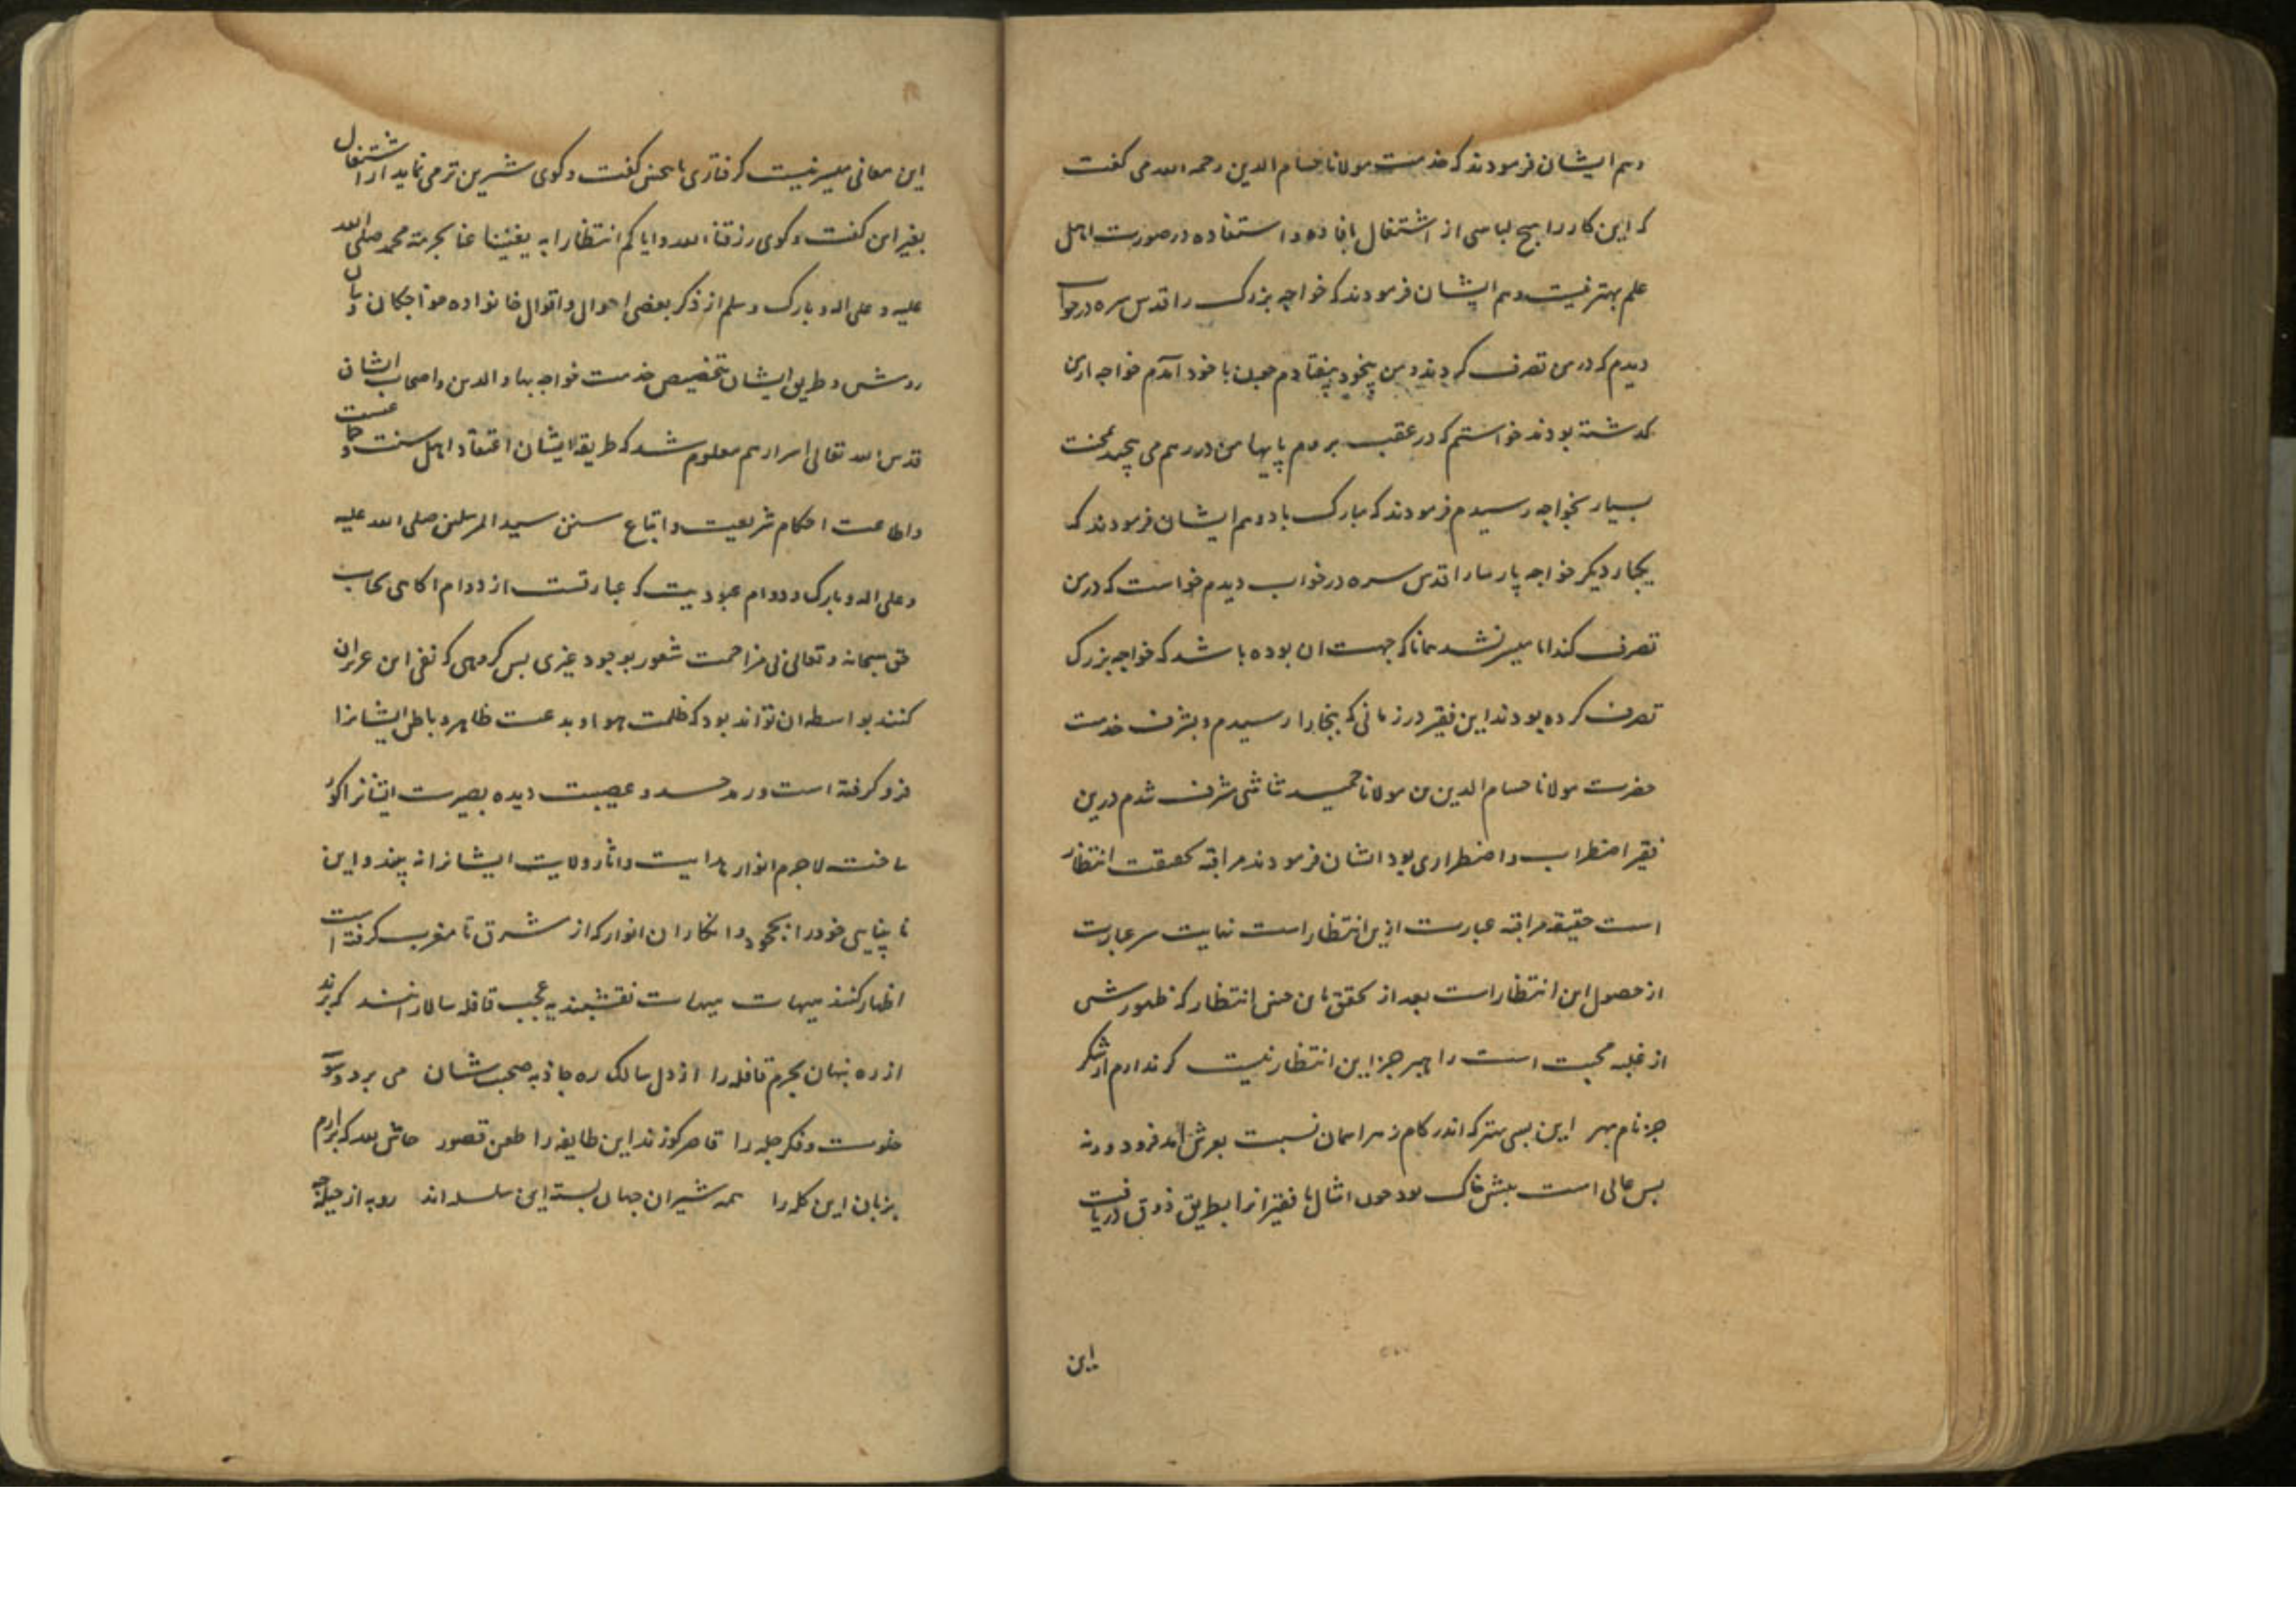 وهم ایشان فرمودند که خدمت مولانا حسام الدین رحمه الله می کفت
که این کار را هیچ لباسی از اشتغال بافاده و استفاده در صورت اهل
علم بهتر نیست و هم ایشان فرمودند که خواجه بزرک را قدس سره در خواب
دیدم که در من تصرف کردند و من بیخود بیفتادم چون با خود آمدم خواجه از من
کذشته بودند خواستم که در عقب بروم پایهای من در هم می پیچید بمحنت
بسیار بخواجه رسیدم فرمودند که مبارک باد و هم ایشان فرمودند که
یکبار دیکر خواجه پارسا را قدس سره در خواب دیدم خواست که در من
تصرف کند اما میسر نشد همانا که جهت آن بوده باشد که خواجه بزرک
تصرف کرده بودند این فقیر در زمانی که ببخارا رسیدم و بشرف خدمت
حضرت مولانا حسام الدین بن مولانا حمید شاشی مشرف شدم درین
فقیر اضطراب و اضطراری بود ایشان فرمودند مراقبه بحقیقت انتظار
است حقیقه مراقبه عبارت ازین انتظار است نهایت سیر عبارت
از حصول این انتظار است بعد از تحقق باین چنین انتظار که ظهورش
از غلبه محبت است راهبر جز این انتظار نیست کر ندارم از شکر
جز نام بهر این بسی بهتر که اندر کام زهر اسمان نسبت بعرش آمد فرود ورنه
بس عالی است پیش خاک تود چون امثال ما فقیرانرا بطریق ذوق دریافت
این
این معانی میسر نیست کرفتاری باین چنین کفت و کوی شیرین تر می نماید از اشتغال
بغیر این کفت و کوی رزقنا الله وایاکم انتظارا به یغنینا عنا بحرمة محمد صلی الله
علیه و علی اله و بارک وسلم از ذکر بعضی احوال و اقوال خانواده خواجکان و بیان
روش و طریق ایشان بتخصیص خدمت خواجه بهاو الدین و اصحاب ایشان
قدس الله تعالی اسرارهم معلوم شد که طریقه ایشان اعتقاد اهل سنت و جماعت
و اطاعت احکام شریعت و اتباع سنن سید المرسلین صلی الله علیه
و علی اله و بارک و دوام عبودیت که عبارتست از دوام اکاهی بجناب
حق سبحانه و تعالی بی مزاحمت شعور بوجود غیری پس کروهی که نفی این عزیزان
کنند بواسطه ان تواند بود که ظلمت هوا و بدعت ظاهر و باطن ایشانرا
فرو کرفته است و رمد حسد و عصبیت دیده بصیرت ایشانرا کور
ساخت لاجرم انوار هدایت و اثار ولایت ایشانرا نه بینند و این
نابینایی خود را بجحود و انکار ان انوار که از مشرق تا مغرب کرفته است
اظهار کنند هیهات هیهات نقشبندیه عجب قافله سالارانند که برند
از ره پنهان بحرم قافله را از دل سالک ره جاذبه صحبتشان می برد وسوسه
خلوت و فکر چله را قاصر کو زند این طایفه را طعن قصور حاش لله که برارم
بزبان این کله را همه شیران جهان بسته این سلسله اند روبه از حیله چه